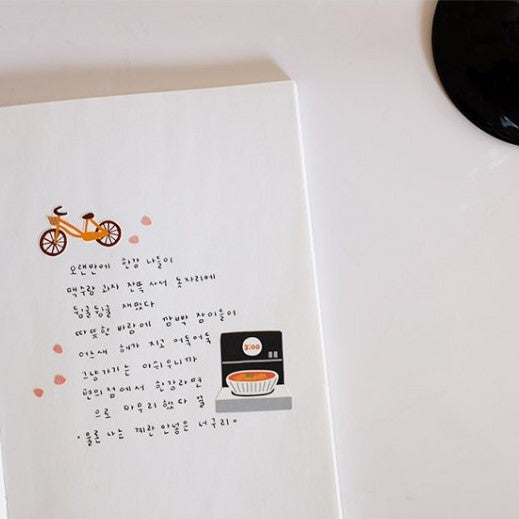 오랜만에 한강 나들이
맥주랑 과자 잔뜩 사서 돗자리에
뒹굴뒹굴 재밌다
따뜻한 바람에 깜빡 잠이들어
어느새 해가 지고 어둑어둑
그냥가기는 아쉬우니까
편의점에서 한강라면
3:00
으로 마무리했다 꿀
*물론 나는 계란 안넣은 너구리*